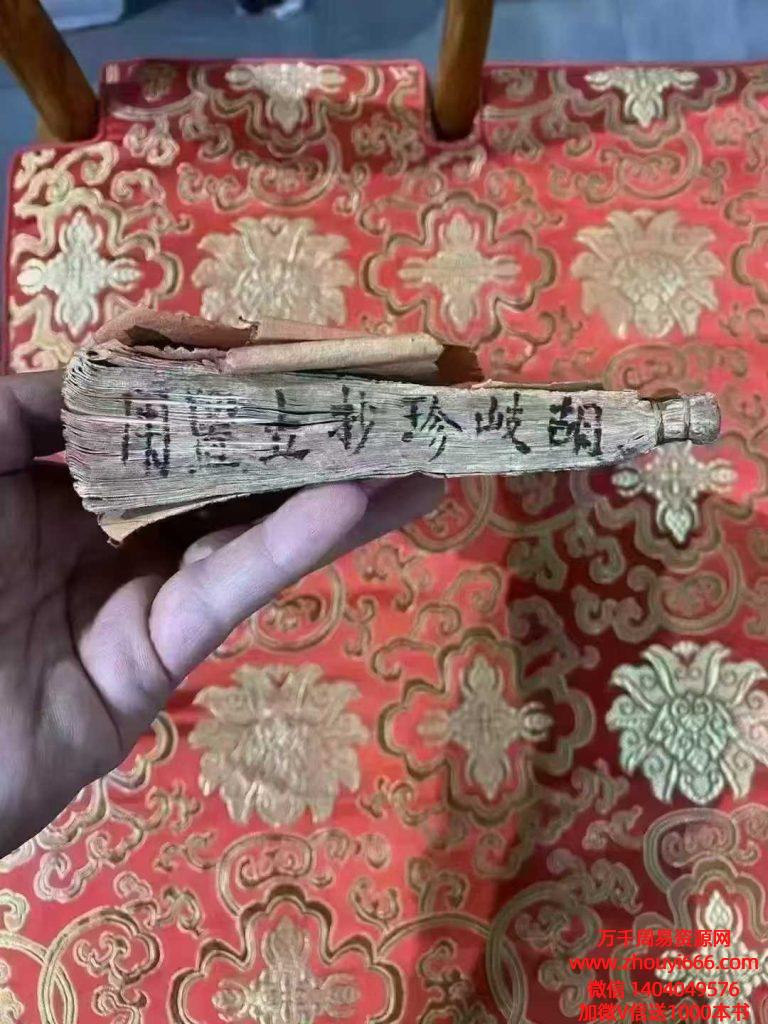 胡岐珍抄立用
万千周易资源网
www.zhouyi666.com
微信 1404049576
加微V送1000本书